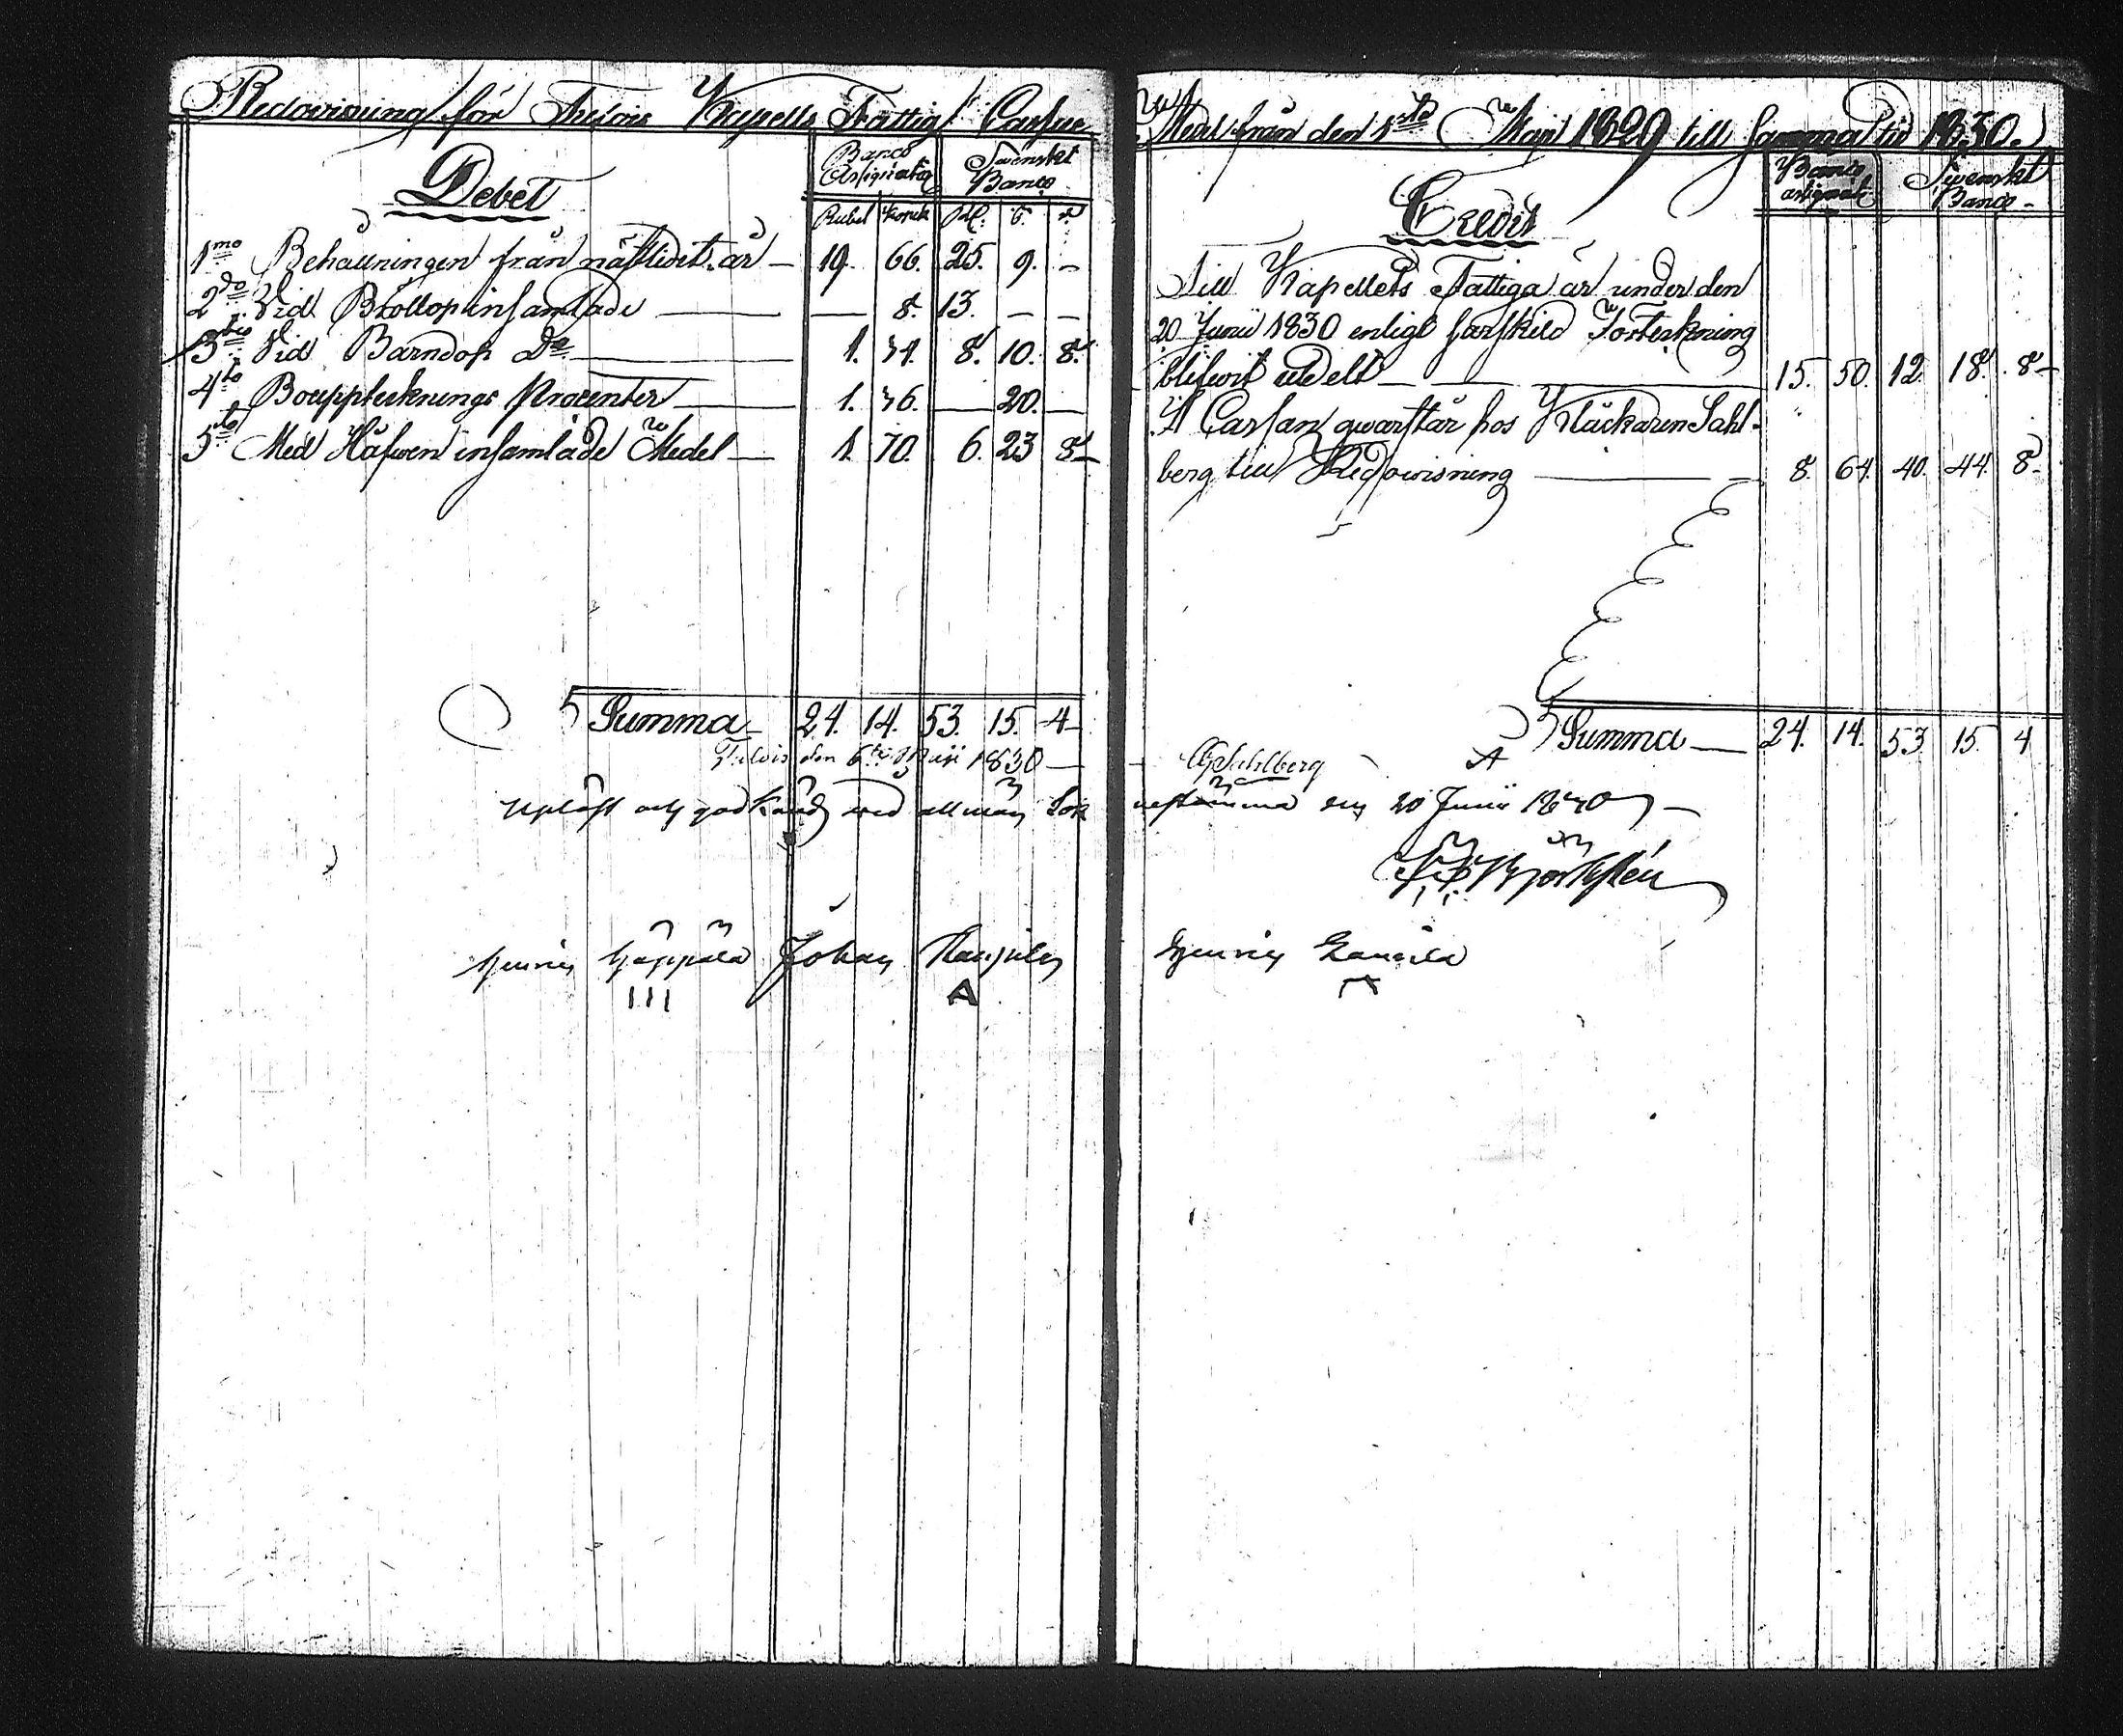 Redovisning för Kapells Fattig Cassae
Debet
Banco Assignater
Swenskt Banco
Rubel Kopek Rd. ß. rst
1mo Behållningen från nästledit år — 19. 66. 25. 9. –
2do Vid Bröllop insamlade — — 8. 13. – –
3tio Vid Barndop Do — 1. 34. 8. 10. 8.
4to Bouppteknings Procenter — 1. 36. — 20. —
5to Med Håfwen insamlade Medel — 1. 70. 6. 23 8 –
Summa 24. 14. 53. 15. 4
den 6te 1830 —
Upläst och godkänd wid allmän Sok
Henric Johan
III A
Medel från den 1sta Maji 1829 till samma tid 1830.
Credit
Banco assignat
Swenskt Banco
Till Kapellets Fattiga är under den
20 Junii 1830 enligt särskild Förtekning
blifwit utdelt — — 15. 50. 12. 18. 8 –
I Cassan qwarstår hos Klåckaren Sahl-
berg till Redowisning — 8. 64. 40. 44. 8 –
Summa — 24. 14. 53. 15. 4
Sahlberg
nestämma den 20 Junii 1830 —
Henric